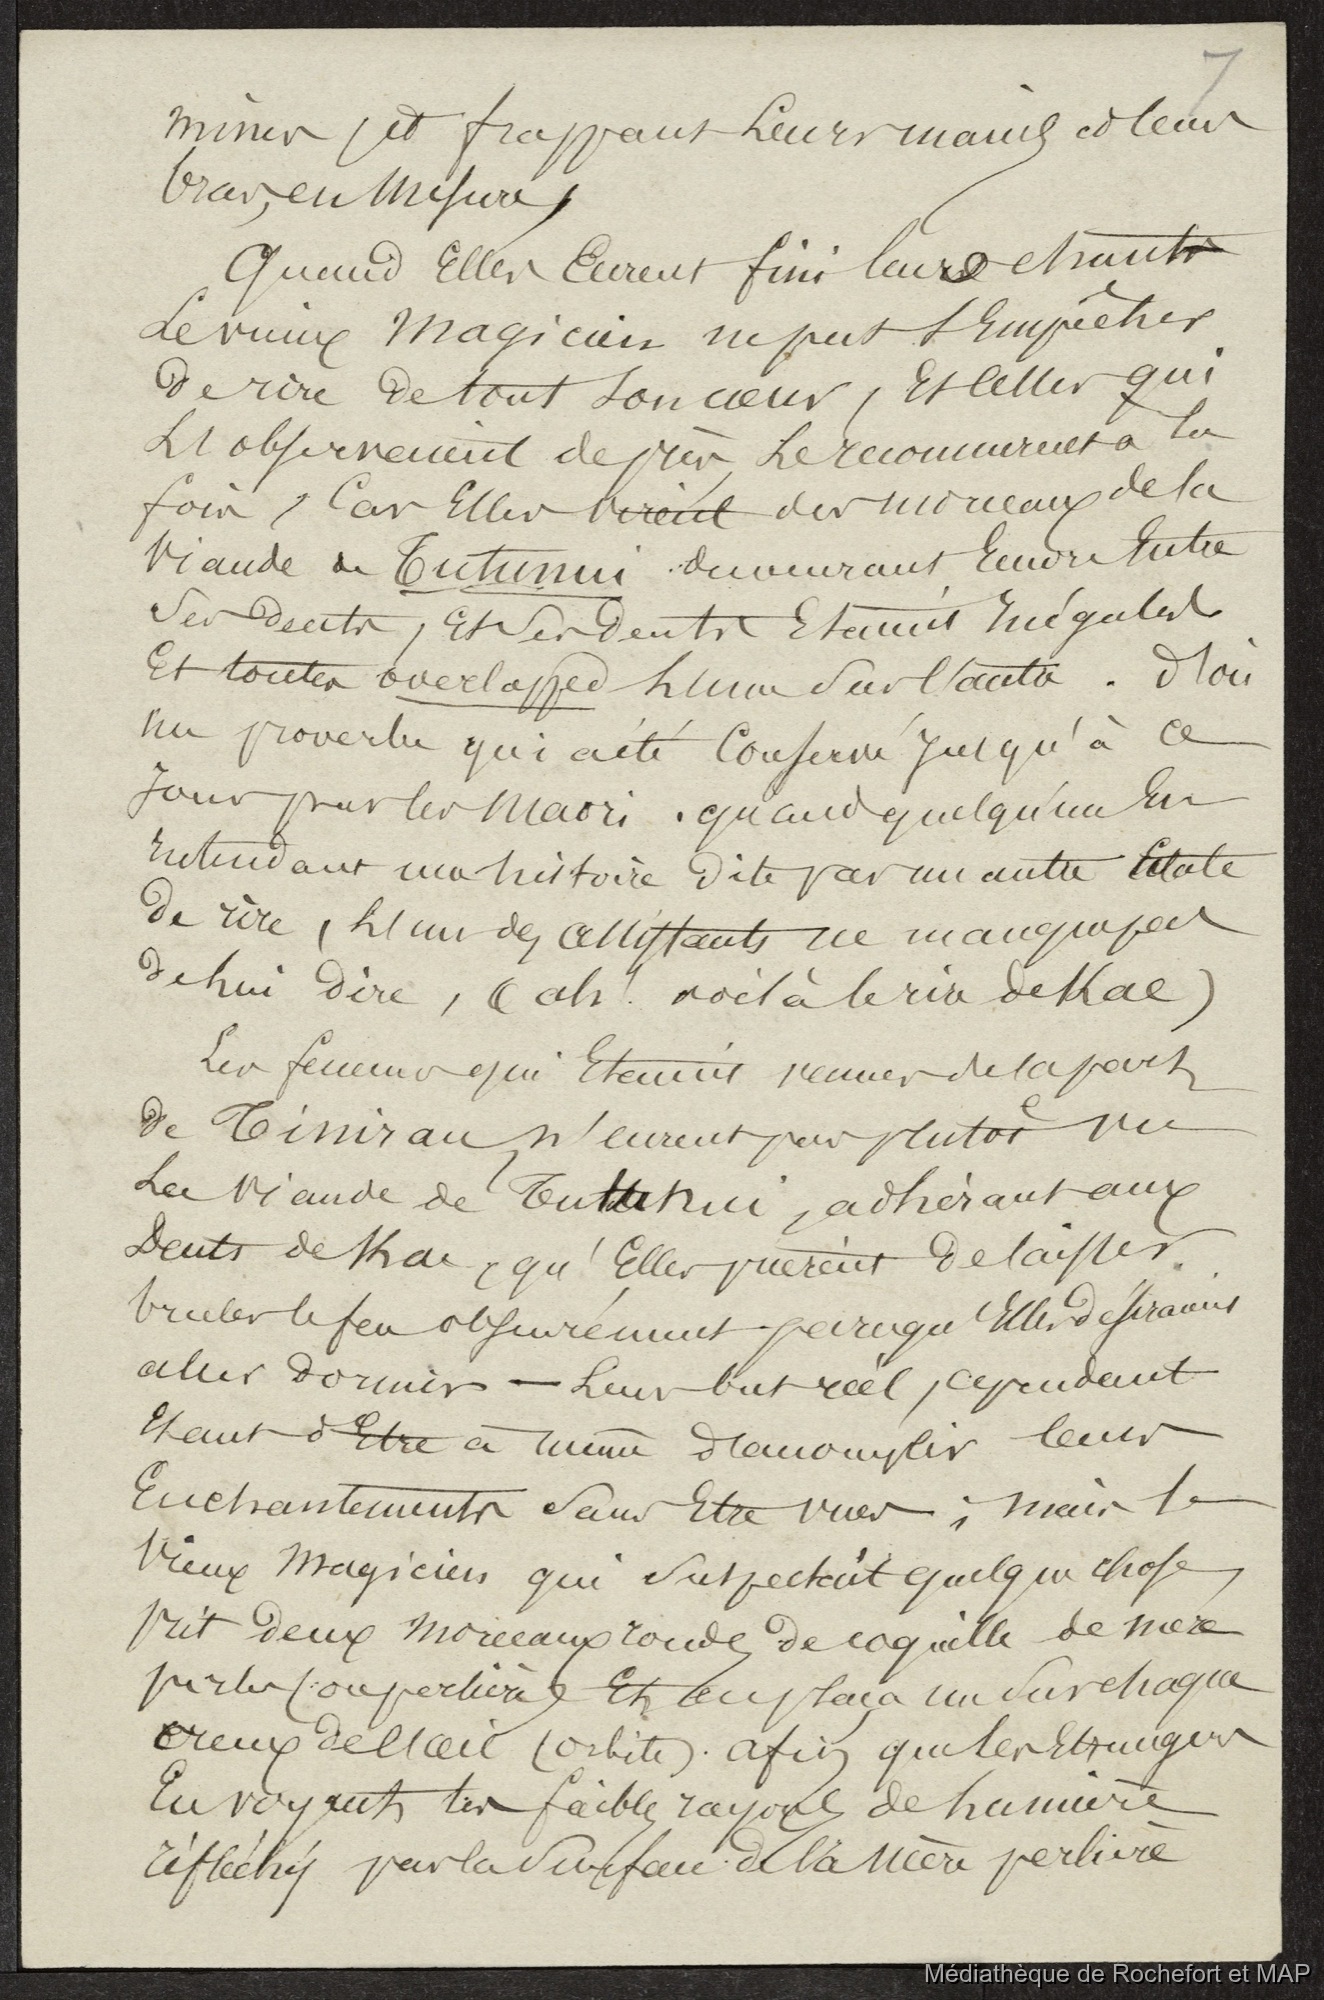 7
mines, et frappant leurs mains et leurs
bras, en mesure,
Quand Elles Eurent fini leurs chants
Le vieux Magicien ne put s'Empêcher
De rire De tout son cœur, Et celles qui
L'observaient de près Le reconnurent à la
fois, Car Elles virent des morceaux de la
Viande de Tutunui demeurant Encore Entre
Ses Dents, Et Ses Dents Etaient Inégales
Et toutes overlapped L'une Sur l'autre. D'où
un proverbe qui a été Conservé Jusqu'à ce
Jour par les Maori. quand quelqu'un En
Entendant une histoire Dite par un autre Eclate
De rire, L'un des assistants ne manque pas
De lui Dire, (ah! voilà le rire de Kae)
Les femmes qui Etaient venues de la part
de Tinirau n'eurent pas plutôt vu
La Viande de Tutunui, adhérant aux
Dents de Kae, qu'Elles prièrent De laisser
bruler le feu obscurément parcequ'Elles Désiraient
aller Dormir — Leur but réel, cependant
Etant d'Etre à même D'accomplir leurs
Enchantements Sans Etre vues; mais le
Vieux Magicien qui Suspectait quelque chose
prit Deux Morceaux ronds De coquille de mère
perle (ou perlière) Et en plaça un Sur chaque
creux De l'œil (orbite). afin que les Etrangers
En voyant les faibles rayons de Lumière
réfléchis par la Surface de la Mère perlière
Médiathèque de Rochefort et MAP